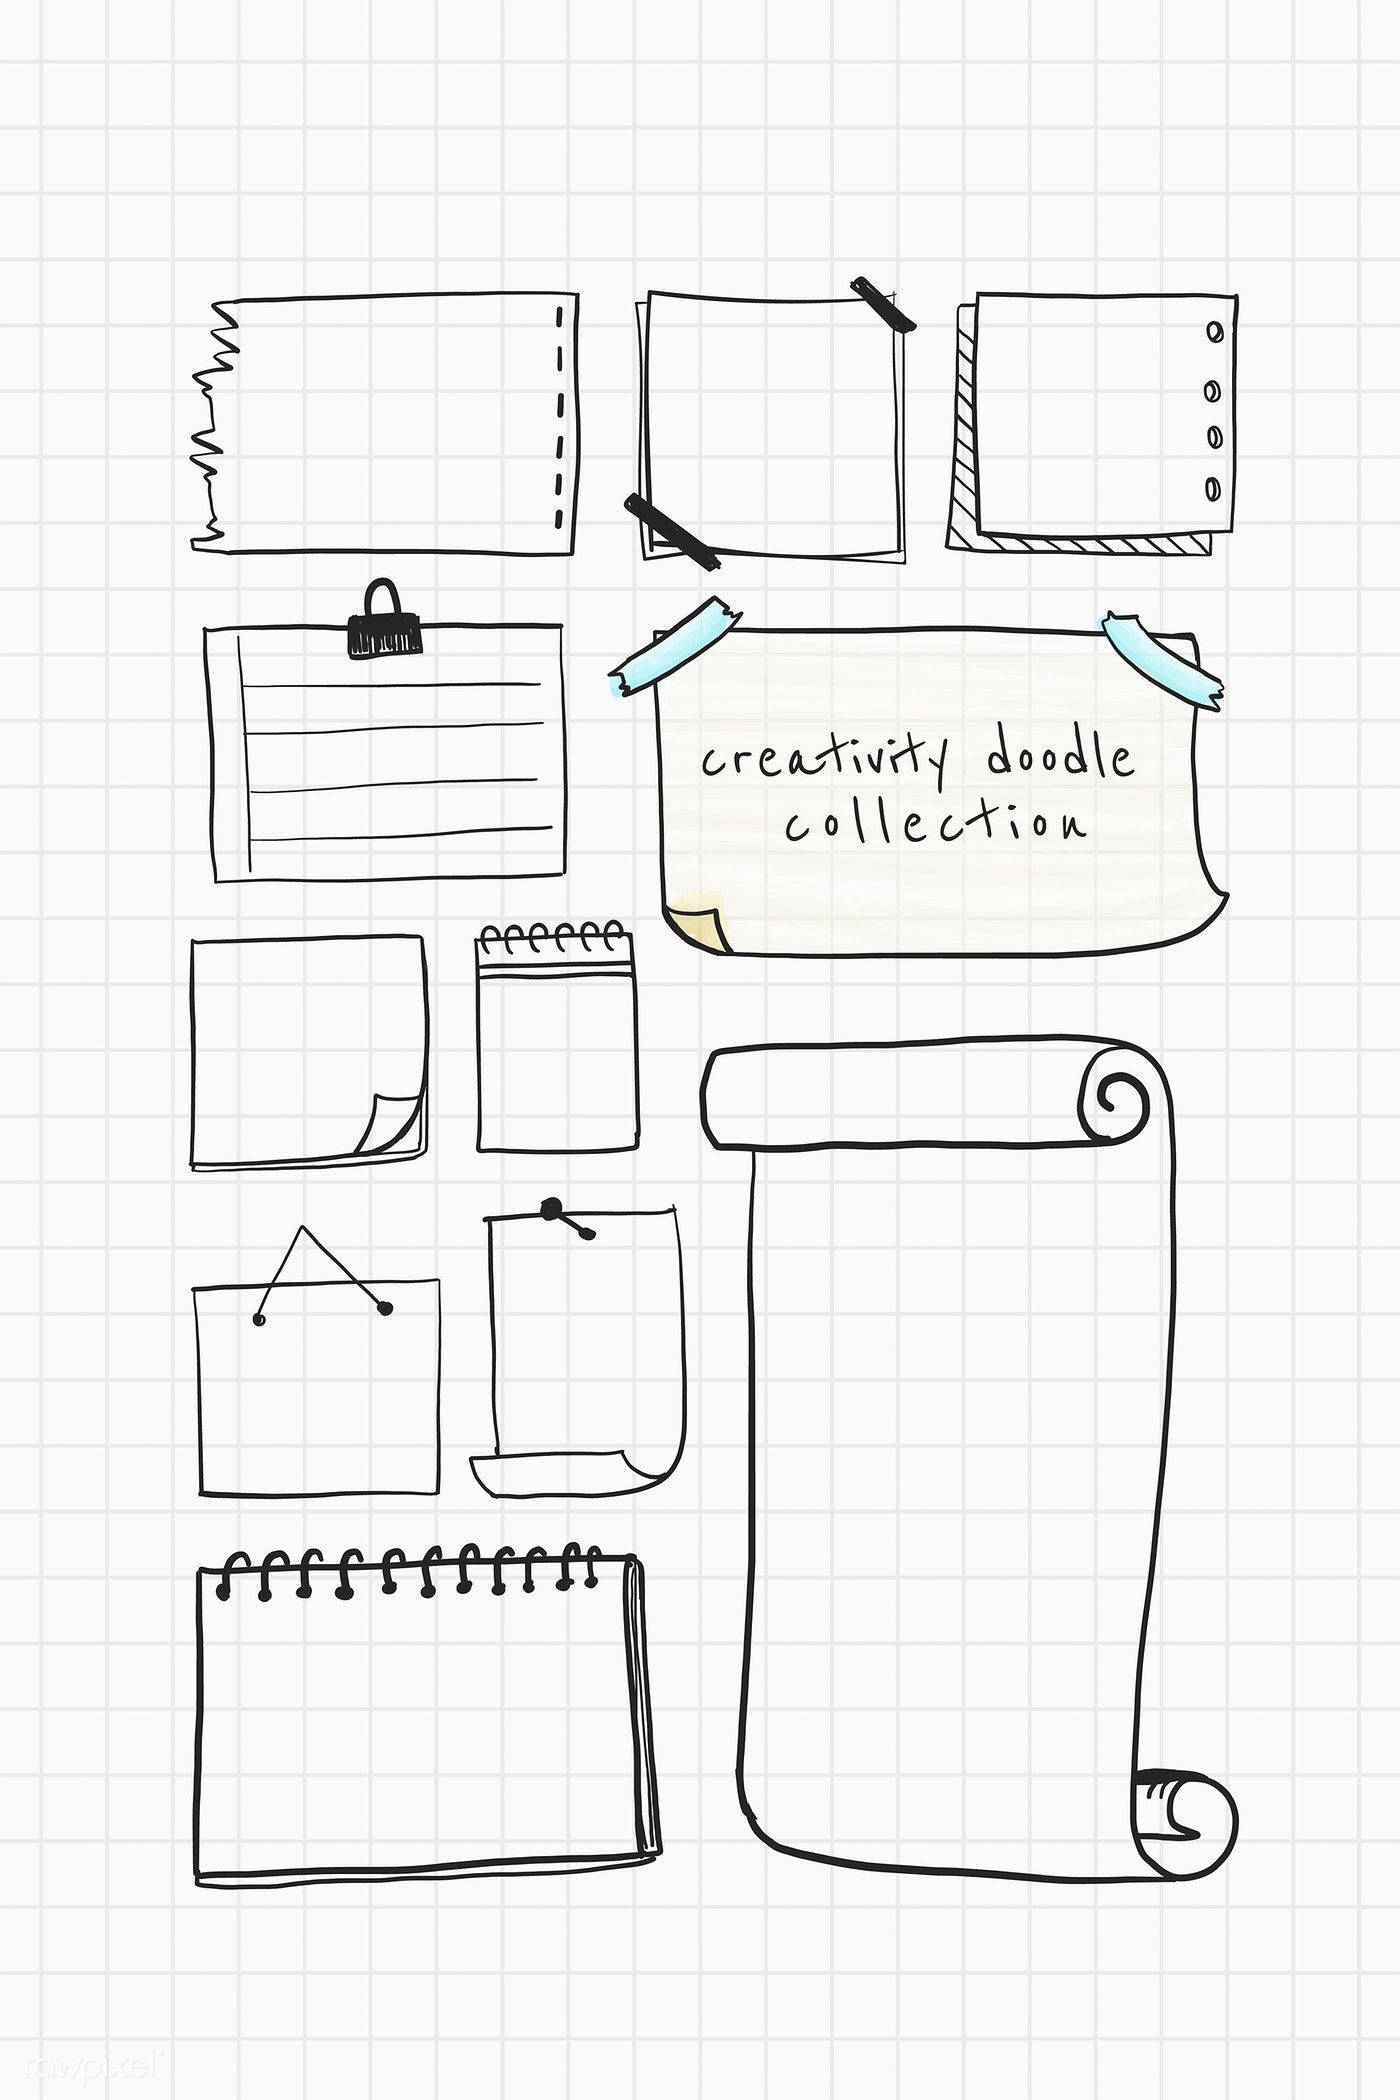 creativity doodle
collection
rawpixel